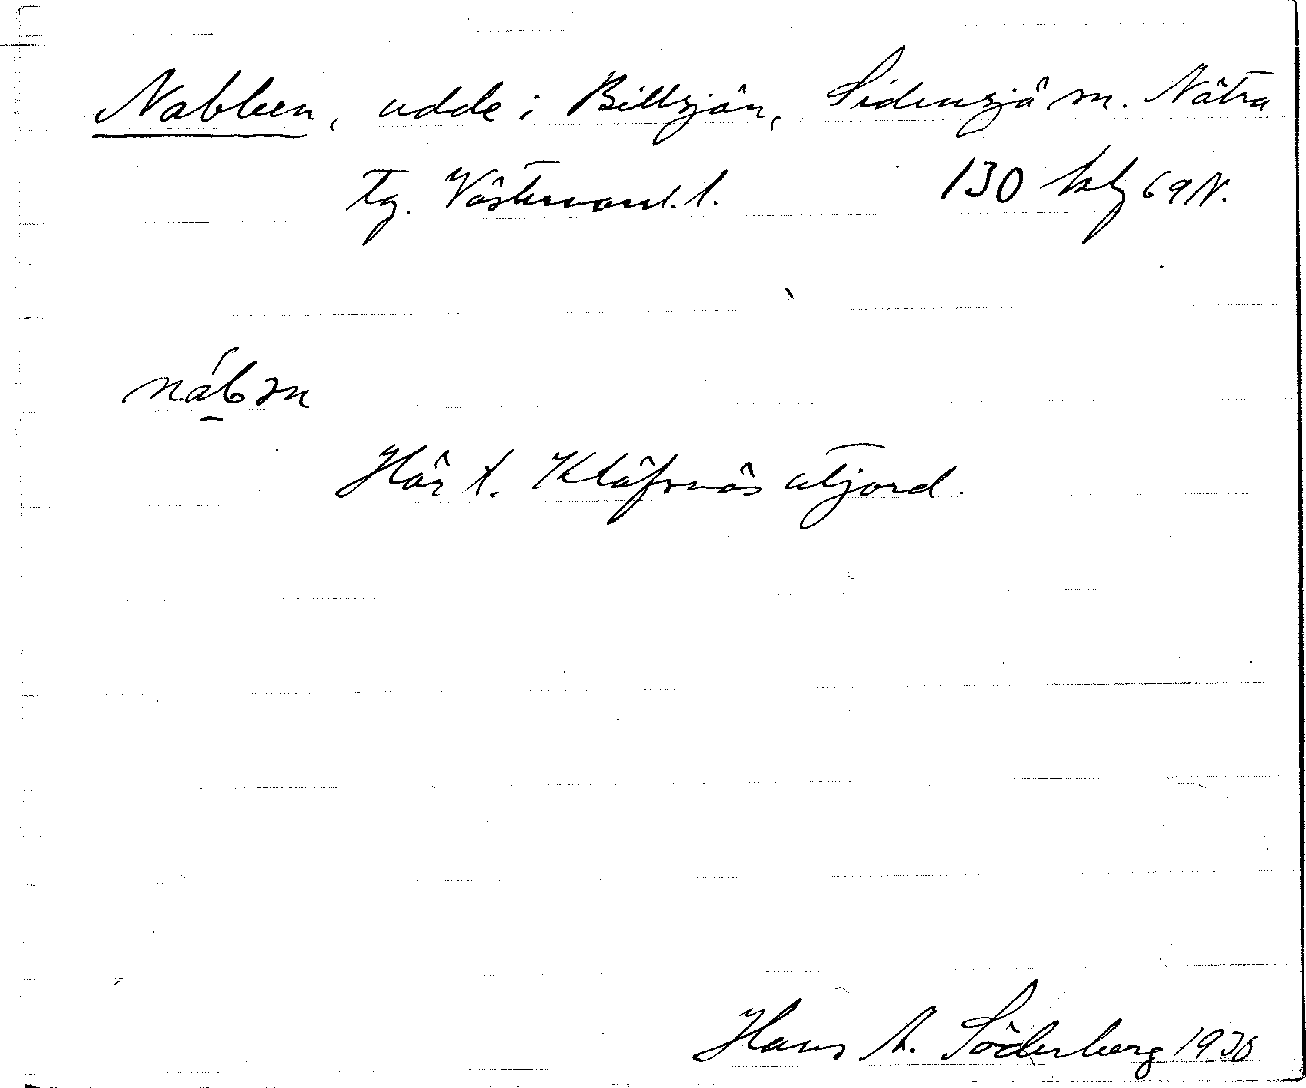 Nabben, udde i Billsjön, Sidensjö sn. Nätra
tg. Västernorrl. l. 130 69 N.
Hör t. Kläfsnäs utjord.
Hans A. Söderberg 1930